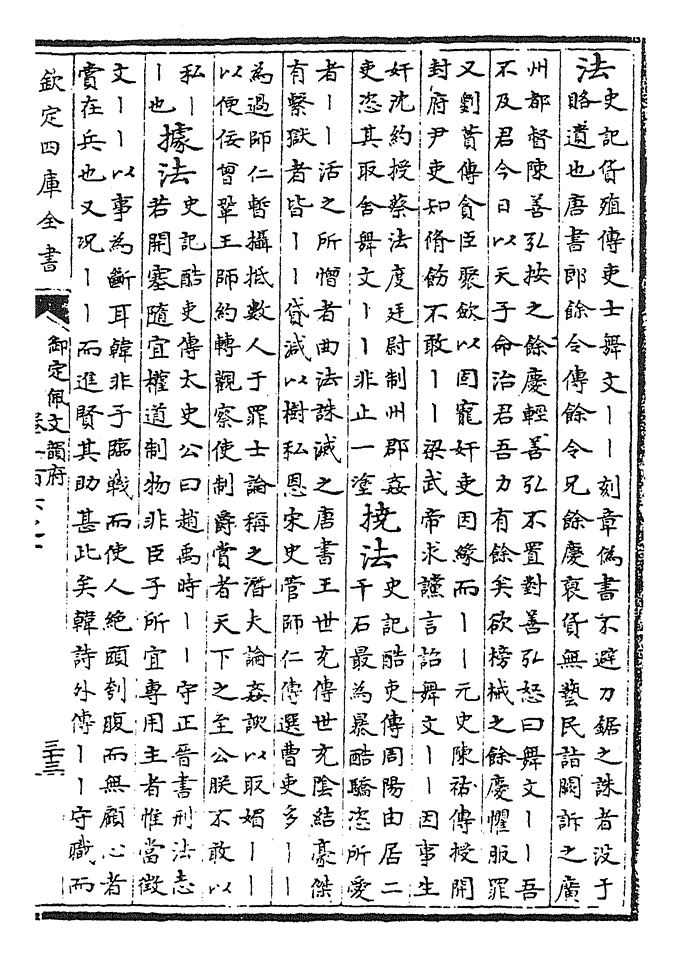 法
史記貨殖傳吏士舞文丨丨刻章偽書不避刀鋸之誅者没于
賂遺也唐書郎餘令傳餘令兄餘慶裒貨無藝民詣闕訴之廣
州都督陳善弘按之餘慶輕善弘不置對善弘怒曰舞文丨丨吾
不及君今日以天子命治君吾力有餘矣欲榜械之餘慶懼服罪
又劉蕡傳貪臣聚歛以固寵奸吏因緣而丨丨元史陳祐傳授開
封府尹吏知脩飭不敢丨丨梁武帝求讜言詔舞文丨丨因事生
奸沈約授蔡法度廷尉制州郡姦
吏恣其取舍舞文丨丨非止一塗
撓法
史記酷吏傳周陽由居二
千石最為暴酷驕恣所愛
者丨丨活之所憎者曲法誅滅之唐書王世充傳世充陰結豪傑
有繫獄者皆丨丨貸減以樹私恩宋史管師仁傳選曹吏多丨丨
為過師仁暫攝抵數人于罪士論稱之潛夫論姦諛以取媚丨丨
以便佞曾鞏王師約轉觀察使制爵賞者天下之至公朕不敢以
私丨
丨也
據法
史記酷吏傳太史公曰趙禹時丨丨守正晉書刑法志
若開塞隨宜權道制物非臣子所宜專用主者惟當徵
文丨丨以事為斷耳韓非子臨戰而使人絶頭刳腹而無顧心者
賞在兵也又况丨丨而進賢其助甚此矣韓詩外傳丨丨守職而
欽定四庫全書
御定佩文韻府
三十三